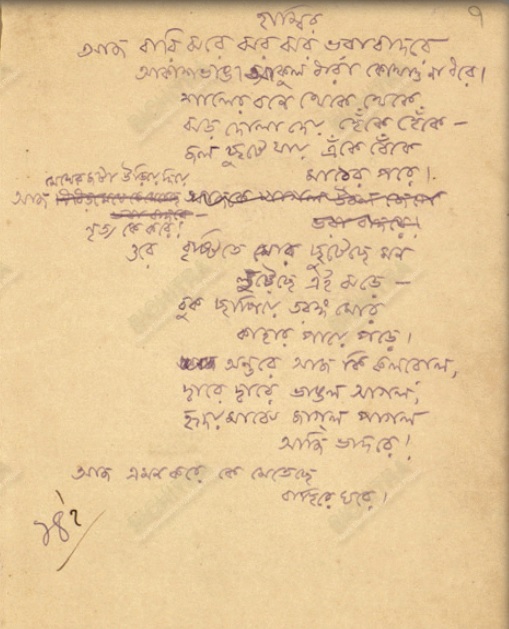 হাম্বির
৭
আজ বারি ঝরে ঝর ঝর ভরা বাদরে
আকাশভাঙা আকুল ধারা কোথাও না ধরে।
শালের বনে থেকে থেকে
ঝড় দোলা দেয় হেঁকে হেঁকে –
জল ছুটে যায় এঁকে বেঁকে
মাঠের পরে।
মেঘের জটা উড়িয়ে দিয়ে
আজ
ভরা বাদরে!
নৃত্য কে করে!
ওরে বৃষ্টিতে মোর ছুটেছে মন
লুটেছে এই ঝড়ে –
বুক ছাপিয়ে তরঙ্গ মোর
কাহার পায়ে পড়ে!
অন্তরে আজ কি কলরোল,
দ্বারে দ্বারে ভাঙল আগল,
হৃদয় মাঝে জাগল পাগল
আজি ভাদরে!
আজ এমন করে কে মেতেছে
বাহিরে ঘরে!
BICHITRA